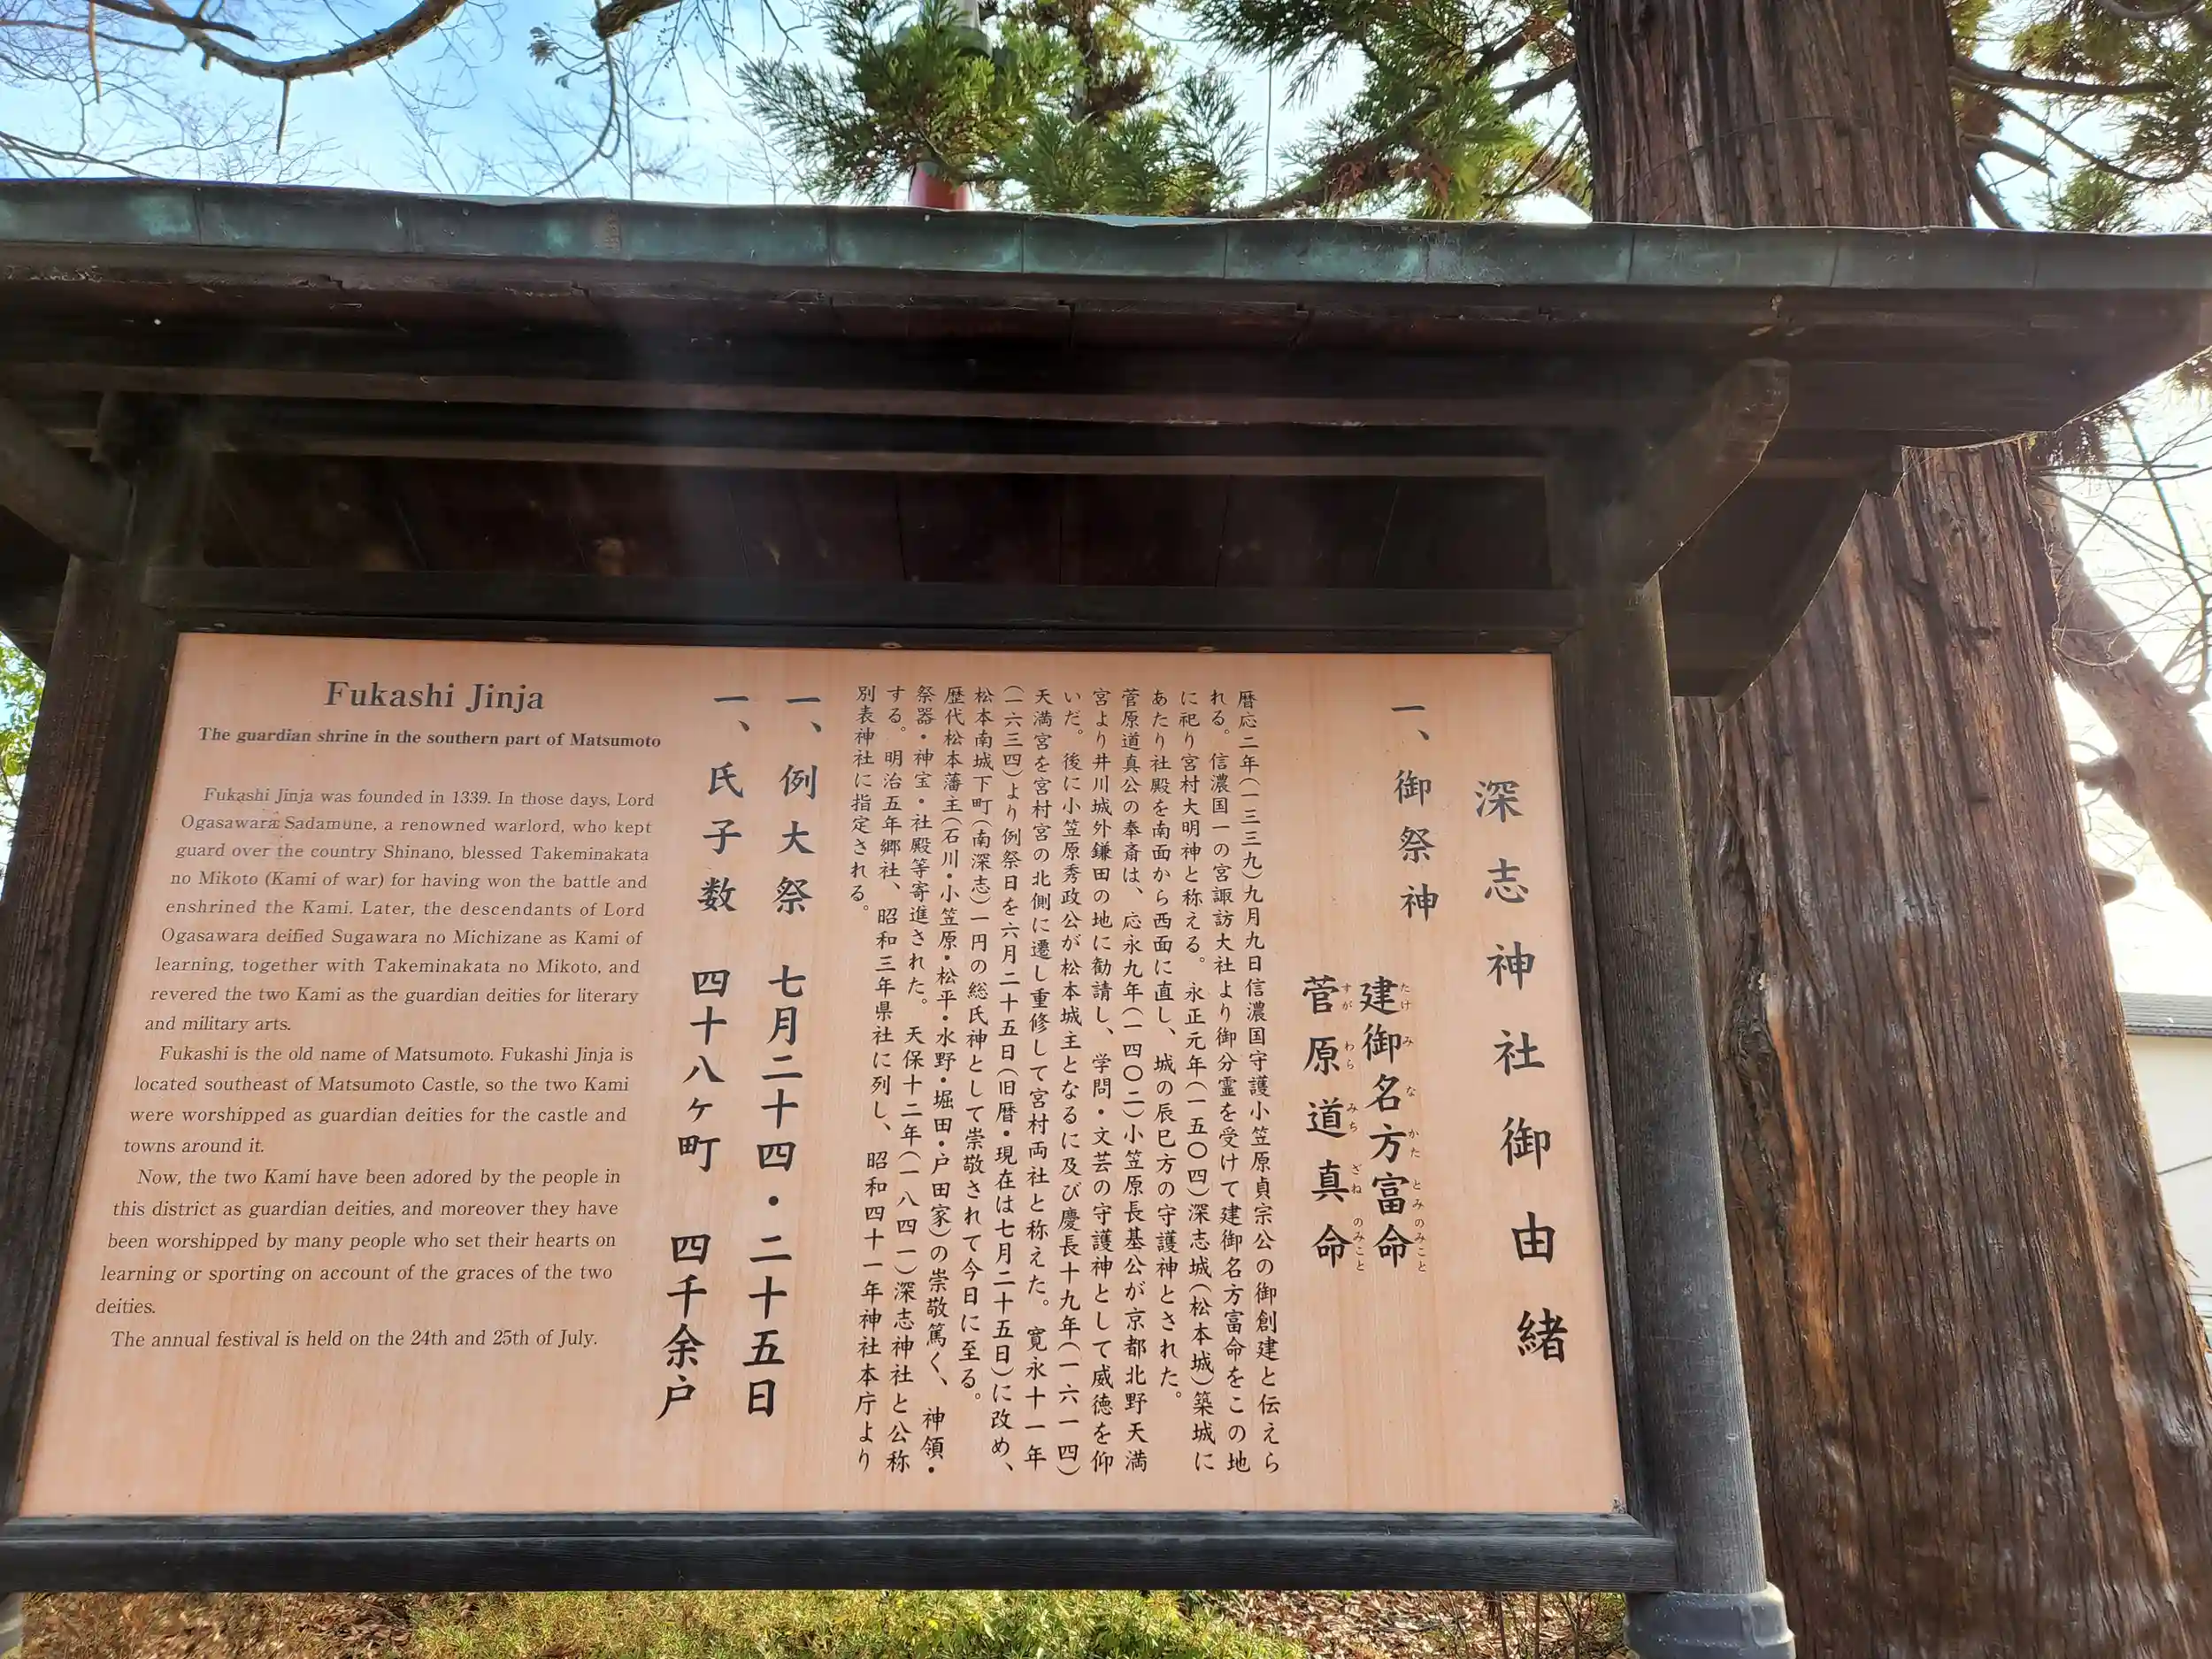 深志神社御由緒
一、御祭神
建御名方富命
たけみなかたとみのみこと
菅原道真命
すがわらみちざねのみこと
暦応二年(一三三九)九月九日信濃国守護小笠原貞宗公の御創建と伝えら
れる。信濃国一の宮諏訪大社より御分霊を受けて建御名方富命をこの地
に祀り宮村大明神と称える。永正元年(一五〇四)深志城(松本城)築城に
あたり社殿を南面から西面に直し、城の辰巳方の守護神とされた。
菅原道真公の奉斎は、応永九年(一四〇二)小笠原長基公が京都北野天満
宮より井川城外鎌田の地に勧請し、学問・文芸の守護神として威徳を仰
いだ。後に小笠原秀政公が松本城主となるに及び慶長十九年(一六一四)
天満宮を宮村宮の北側に遷し重修して宮村両社と称えた。寛永十一年
(一六三四)より例祭日を六月二十五日(旧暦・現在は七月二十五日)に改め、
松本南城下町(南深志)一円の総氏神として崇敬されて今日に至る。
歴代松本藩主(石川・小笠原・松平・水野・堀田・戸田家)の崇敬篤く、神領・
祭器・神宝・社殿等寄進された。天保十二年(一八四一)深志神社と公称
する。明治五年郷社、昭和三年県社に列し、昭和四十一年神社本庁より
別表神社に指定される。
一、例大祭 七月二十四・二十五日
一、氏子数 四十八ヶ町 四千余戸
Fukashi Jinja
The guardian shrine in the southern part of Matsumoto
Fukashi Jinja was founded in 1339. In those days, Lord
Ogasawara Sadamune, a renowned warlord, who kept
guard over the country Shinano, blessed Takeminakata
no Mikoto (Kami of war) for having won the battle and
enshrined the Kami. Later, the descendants of Lord
Ogasawara deified Sugawara no Michizane as Kami of
learning, together with Takeminakata no Mikoto, and
revered the two Kami as the guardian deities for literary
and military arts.
Fukashi is the old name of Matsumoto. Fukashi Jinja is
located southeast of Matsumoto Castle, so the two Kami
were worshipped as guardian deities for the castle and
towns around it.
Now, the two Kami have been adored by the people in
this district as guardian deities, and moreover they have
been worshipped by many people who set their hearts on
learning or sporting on account of the graces of the two
deities.
The annual festival is held on the 24th and 25th of July.